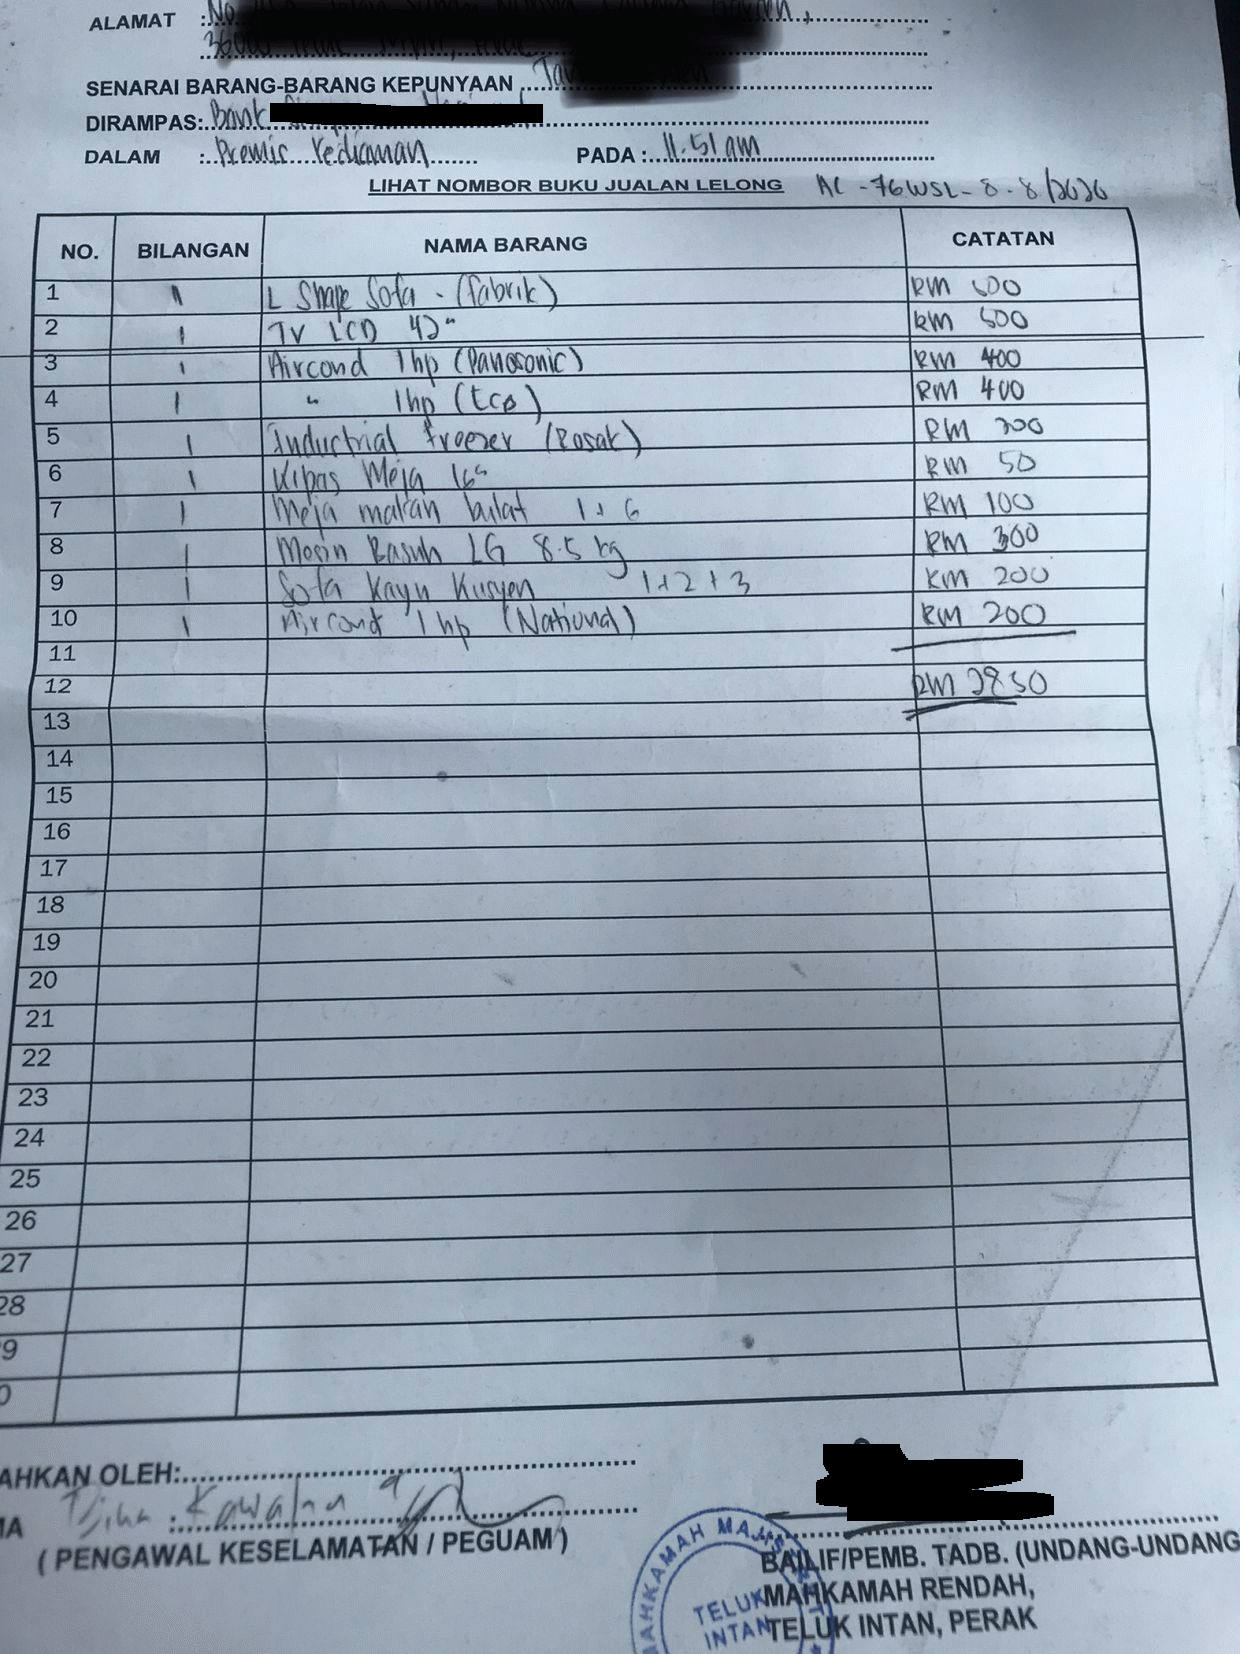 ALAMAT :
SENARAI BARANG-BARANG KEPUNYAAN
DIRAMPAS: Bank
DALAM : Premis Kediaman PADA : 11.51 am
LIHAT NOMBOR BUKU JUALAN LELONG AC-76WSL-8-8/2020
NO. BILANGAN NAMA BARANG CATATAN
1 1 L Shape Sofa - (fabrik) RM 600
2 1 TV LCD 42" RM 500
3 1 Aircond 1hp (Panasonic) RM 400
4 1 " 1hp RM 400
5 1 Industrial freezer (Rosak) RM
6 1 Kipas Meja 16" RM 50
7 1 Meja makan bulat 1+6 RM 100
8 1 Mesin Basuh LG 8.5 kg RM 300
9 1 Sofa Kayu Kusyen 1+2+3 RM 200
10 1 Aircond 1hp (National) RM 200
11
12 RM 2950
13
14
15
16
17
18
19
20
21
22
23
24
25
26
27
28
9
0
AHKAN OLEH:
MA : Kawalan
( PENGAWAL KESELAMATAN / PEGUAM )
BAILIF/PEMB. TADB. (UNDANG-UNDANG
MAHKAMAH RENDAH,
TELUK INTAN, PERAK
MAHKAMAH MAJISTRET
TELUK
INTAN